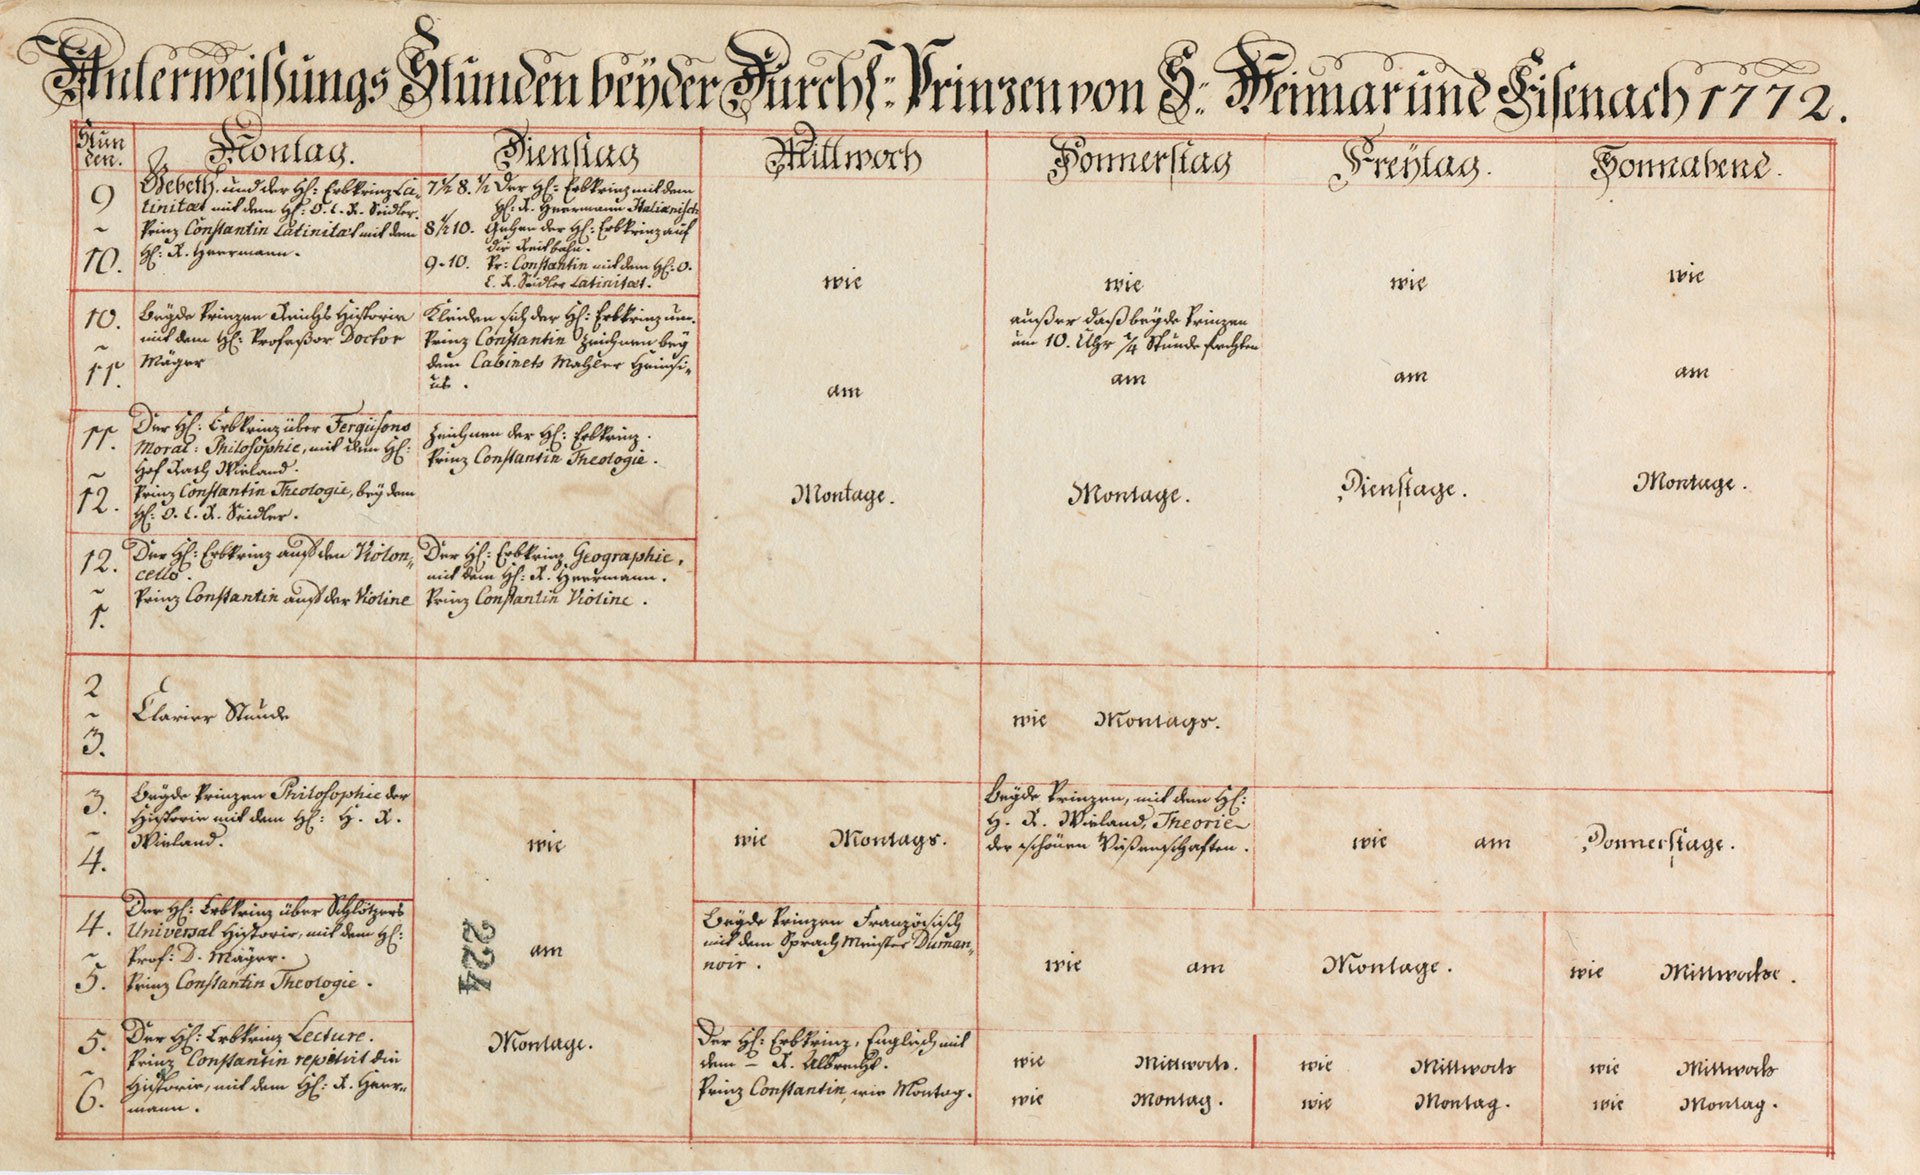 Unterweißungs Stunden beyder Durchl: Prinzen von S: Weimar und Eisenach 1772.
Stun
den.
Montag.
Dienstag
Mittwoch
Donnerstag
Freytag.
Sonnabend.
9
~
10.
Gebeth, und der H: Erbprinz La-
tinitaet mit dem H: O. C. R. Seidler.
Prinz Constantin Latinitaet mit dem
H: R. Herrmann.
7 1/2 8. 1/2 Der H: Erbprinz mit dem
H: R. Herrmann Italiænisch
8 1/2 10. Gehen der H: Erbprinz auf
die Reitbahn.
9-10. Pr: Constantin mit dem H: O.
C. R. Seidler Latinitæt.
10.
~
11.
Beyde Prinzen Reichs Historie
mit dem H: Profeßor Doctor
Mäger
Kleiden sich der H: Erbprinz um.
Prinz Constantin Zeichnen bey
dem Cabinets Mahler Heinsi-
us.
11.
~
12.
Der H: Erbprinz über Fergusons
Moral: Philosophie, mit dem H:
Hof Rath Wieland.
Prinz Constantin Theologie, bey dem
H: O. C. R. Seidler.
Zeichnen der H: Erbprinz.
Prinz Constantin Theologie.
12.
~
1.
Der H: Erbprinz auf den Violon-
cello.
Prinz Constantin auf der Violine
Der H: Erbprinz Geographie,
mit dem H: R. Herrmann.
Prinz Constantin Violine.
wie
am
Montage.
wie
außer daß beyde Prinzen
um 10. Uhr 1/4 Stunde fechten
am
Montage.
wie
am
Dienstage.
wie
am
Montage.
2
~
3.
Clavier Stunde
wie Montags.
3.
~
4.
Beyde Prinzen Philosophie der
Historie mit dem H: H. R.
Wieland.
wie
am
Montage.
wie Montags.
Beyde Prinzen, mit dem H:
H. R. Wieland, Theorie
der schönen Wißenschaften.
wie am Donnerstage.
4.
~
5.
Der H: Erbprinz über Schlötzers
Universal Historie, mit dem H:
Prof: D. Mäger.
Prinz Constantin Theologie.
224
Beyde Prinzen Französisch
mit dem Sprach Meister Duman-
noir.
wie am Montage.
wie Mittwochs.
5.
~
6.
Der H: Erbprinz Lecture.
Prinz Constantin repetirt die
Historie, mit dem H: R. Herr-
mann.
Der H: Erbprinz, Englisch mit
dem – R. Albrecht.
Prinz Constantin, wie Montag.
wie Mittwoch.
wie Montag.
wie Mittwoch
wie Montag.
wie Mittwoch
wie Montag.